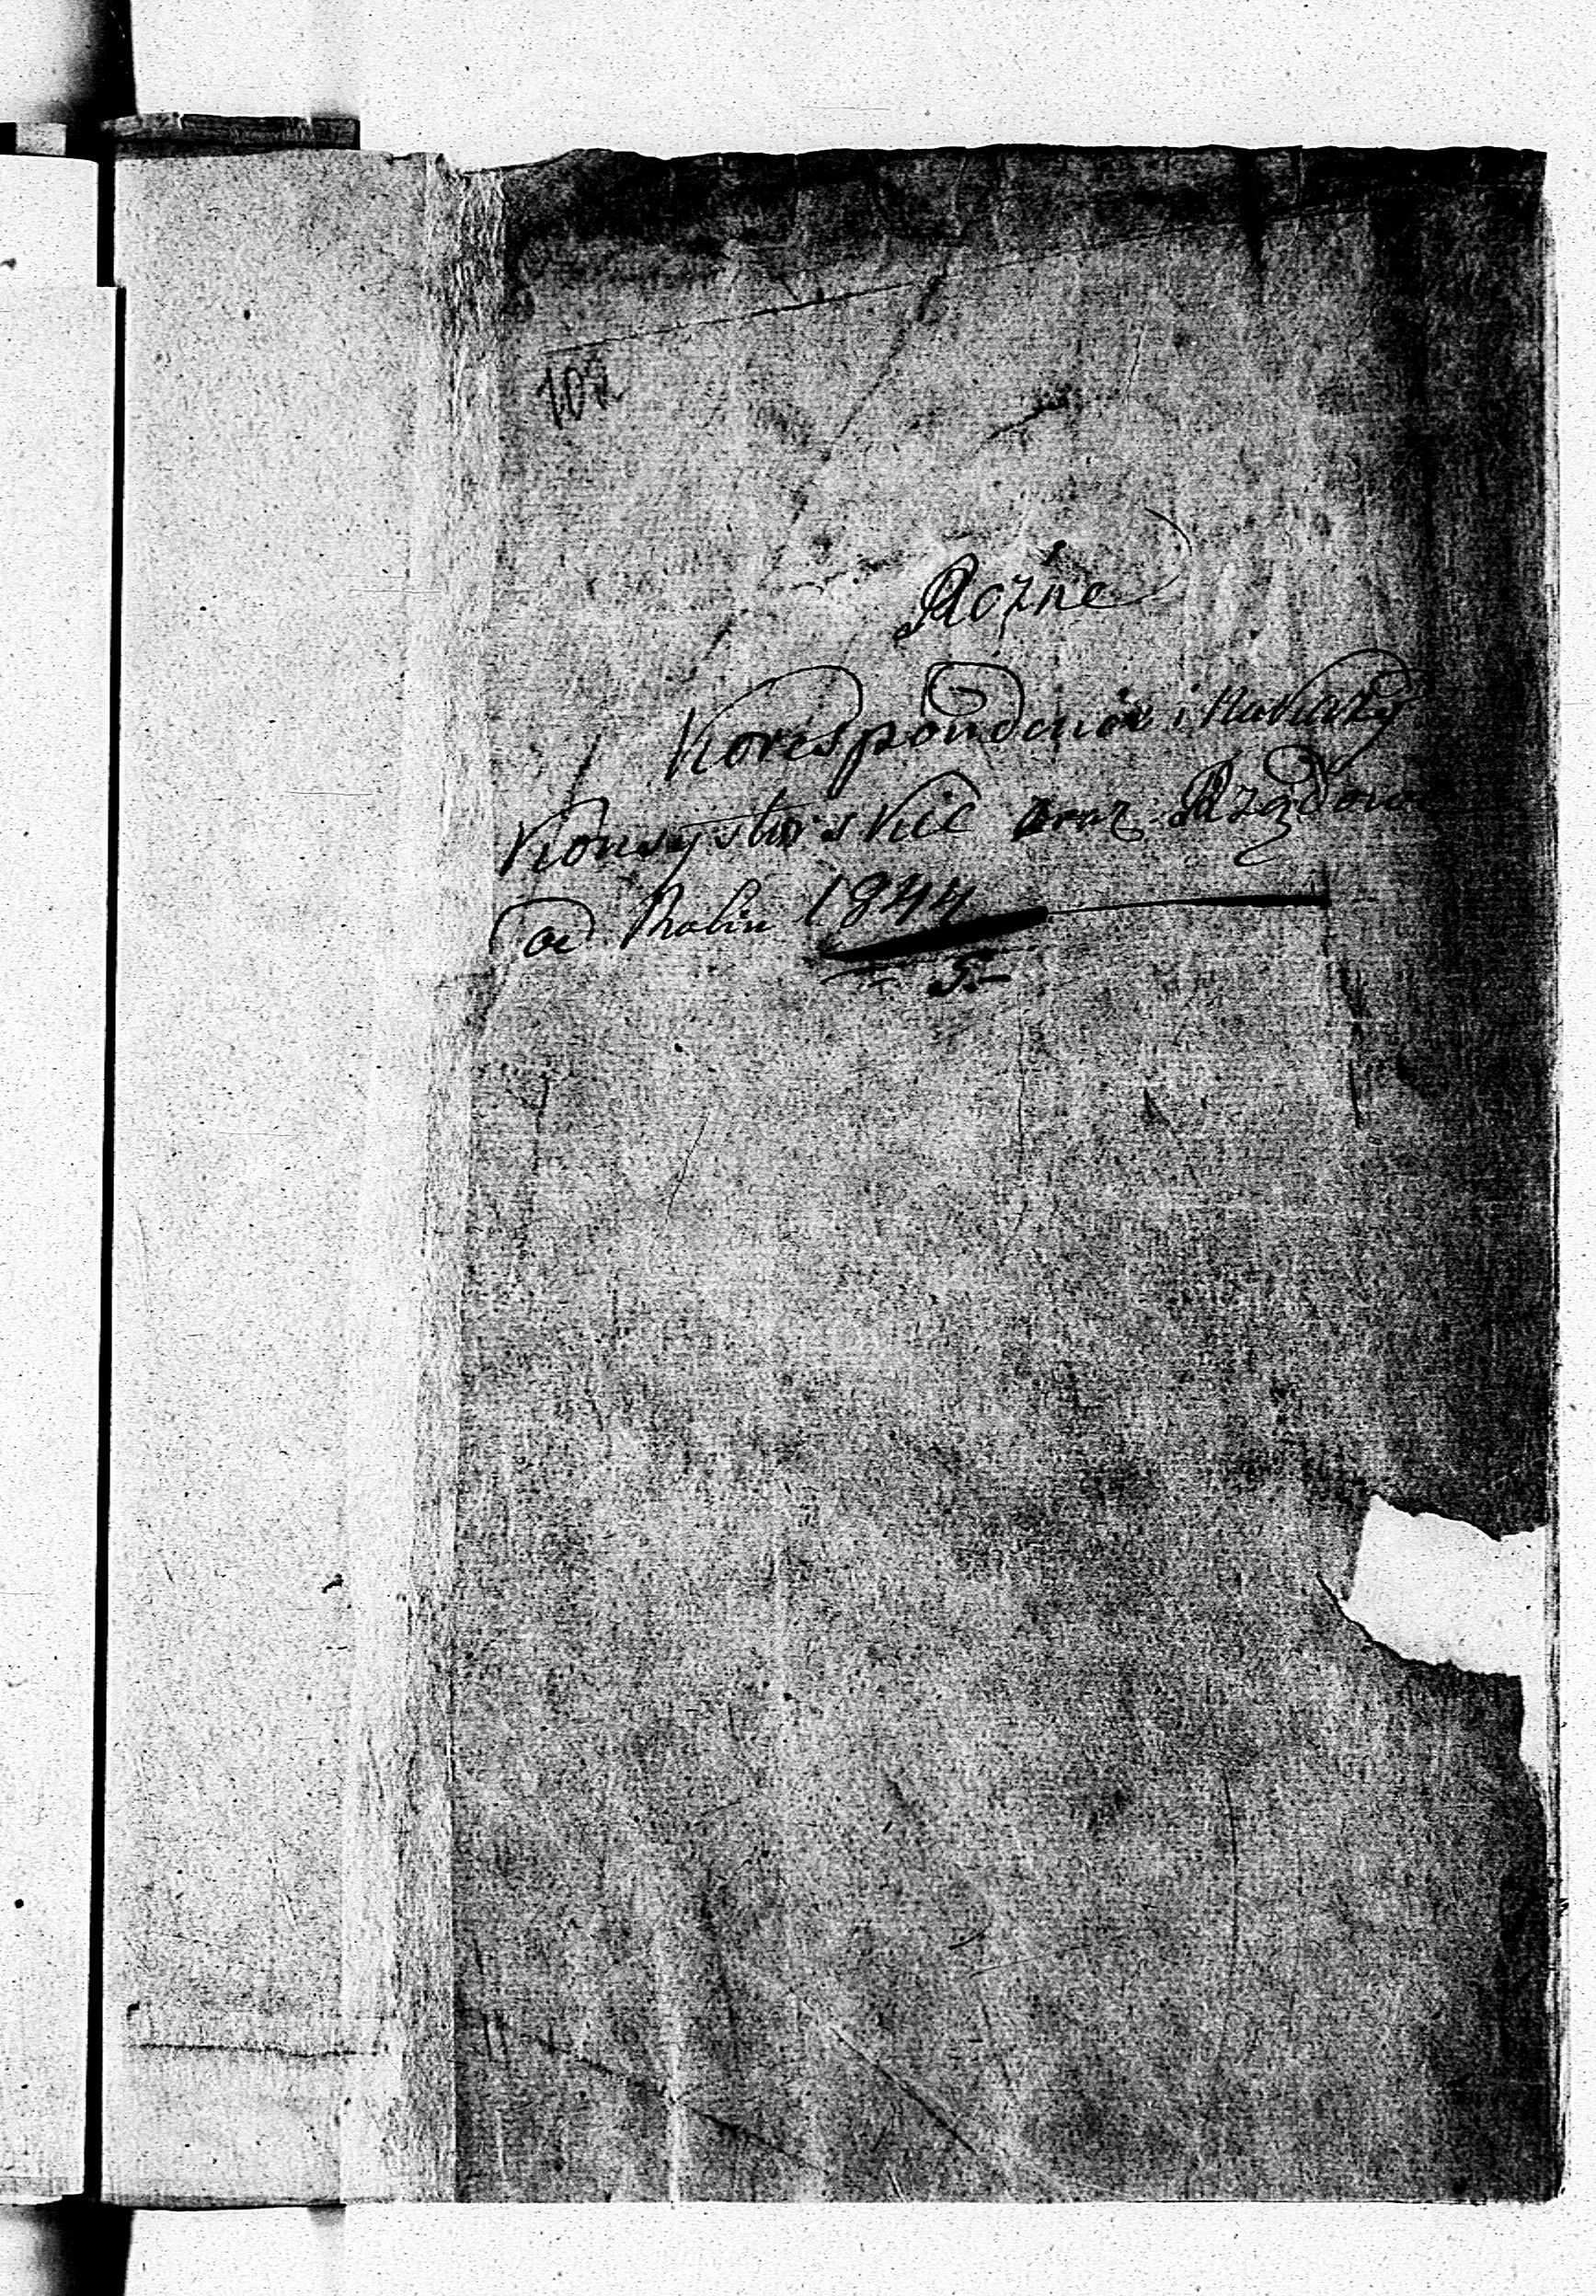 102
Rożne
Korespondencie i Nakazy
Konsystorskie oraz Rządowe
od Roku 1844
5.